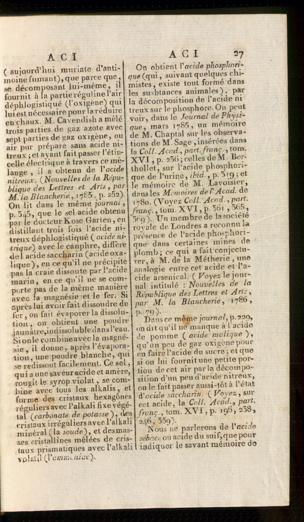 ACI
( aujourd'hui muriate d'anti-
moine fumant), que parce que,
se décomposant lui-même, il
fournit à la partie réguline l'air
déphlogistiqué (l'oxigène) qui
lui est nécessaire pour la réduire
en chaux. M. Cavendish a mêlé
trois parties de gaz azote avec
sept parties de gaz oxigène, ou
air pur préparé sans acide ni-
treux ; et ayant fait passer l'étin-
celle électrique à travers ce mé-
lange, il a obtenu de l'acide
nitreux. (Nouvelles de la Répu-
blique des Lettres et Arts, par
M. la Blancherie, 1785, p. 252).
On lit dans le même journal,
p. 545, que le sel acide obtenu
par le docteur Kose Garten, en
distillant trois fois l'acide ni-
treux déphlogistiqué (acide ni-
trique) avec le camphre, diffère
de l'acide saccharin (acide oxa-
lique), en ce qu'il ne précipite
pas la craie dissoute par l'acide
marin, en ce qu'il ne se com-
porte pas de la même manière
avec la magnésie et le fer. Si
après lui avoir fait dissoudre du
fer, on fait évaporer la dissolu-
tion, on obtient une poudre
jaunâtre, indissoluble dans l'eau.
Si on le combine avec la magné-
sie, il donne, après l'évapora-
tion, une poudre blanche, qui
se redissout facilement. Ce sel,
qui a une saveur acide et amère,
rougit le syrop violat, se com-
bine avec tous les alkalis, et
forme des cristaux hexagones
réguliers avec l'alkali fixe végé-
tal (carbonate de potasse), des
cristaux irréguliers avec l'alkali
minéral (la soude), et des mas-
ses cristallines mêlées de cris-
taux prismatiques avec l'alkali
volatil (l'ammoniac).
ACI 27
On obtient l'acide phosphori-
que (qui, suivant quelques chi-
mistes, existe tout formé dans
les substances animales), par
la décomposition de l'acide ni-
treux sur le phosphore. On peut
voir, dans le Journal de Physi-
que, mars 1785, un mémoire
de M. Chaptal sur les observa-
tions de M. Sage, insérées dans
la Coll. Acad. part. franç., tom.
XVI, p. 256; celles de M. Ber-
thollet, sur l'acide phosphori-
que de l'urine, ibid., p. 519 ; et
le mémoire de M. Lavoisier,
dans les Mémoires de l'Acad. de
1780. (Voyez Coll. Acad. part.
franç., tom. XVI, p. 361, 365,
369). Un membre de la société
royale de Londres a reconnu la
présence de l'acide phosphori-
que dans certaines mines de
plomb; ce qui a fait conjectu-
rer, à M. de la Métherie, une
analogie entre cet acide et l'a-
cide arsenical. ( Voyez le jour-
nal intitulé : Nouvelles de la
République des Lettres et Arts,
par M. la Blancherie, 1786,
p. 79).
Dans ce même journal, p. 220,
on dit qu'il ne manque à l'acide
de pomme ( acide malique ),
qu'un peu de gaz oxigène pour
en faire l'acide du sucre; et que
si on lui fournit une petite por-
tion de cet air par la décompo-
sition d'un peu d'acide nitreux,
on le fait passer aussi-tôt à l'état
d'acide saccharin. ( Voyez, sur
cet acide, la Coll. Acad., part.
franç., tom. XVI, p. 196, 238,
246, 359).
Nous ne parlerons de l'acide
sébace, ou acide du suif, que pour
indiquer le savant mémoire de